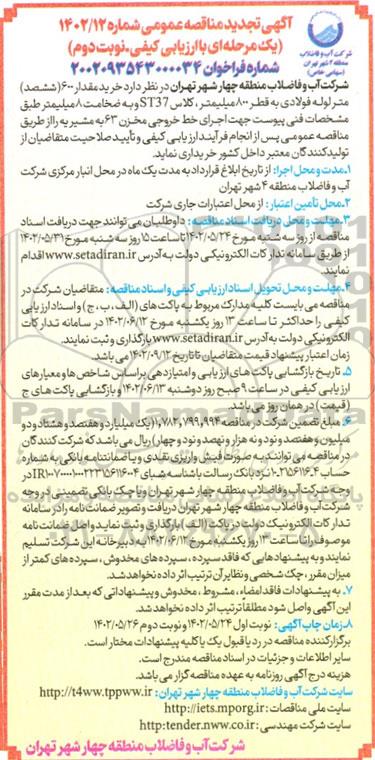 آگهی تجدید مناقصه عمومی شماره ۱۴۰۲/۱۲
(یک مرحله‌ای با ارزیابی کیفی، نوبت دوم)
شماره فراخوان ۲۰۰۲۰۹۳۵۴۳۰۰۰۰۳۴
شرکت آب و فاضلاب
منطقه ۴ شهر تهران
(سهامی خاص)
شرکت آب و فاضلاب منطقه چهار شهر تهران در نظر دارد خرید مقدار ۶۰۰ (ششصد)
متر لوله فولادی به قطر ۸۰۰ میلیمتر، کلاس ST37 و به ضخامت ۸ میلیمتر طبق
مشخصات فنی پیوست جهت اجرای خط خروجی مخزن ۶۳ به مشیریه را از طریق
مناقصه عمومی پس از انجام فرآیند ارزیابی کیفی و تأیید صلاحیت متقاضیان از
تولیدکنندگان معتبر داخل کشور خریداری نماید.
۱. مدت و محل اجرا: از تاریخ ابلاغ قرارداد به مدت یک ماه در محل انبار مرکزی شرکت
آب و فاضلاب منطقه ۴ شهر تهران
۲. محل تأمین اعتبار: از محل اعتبارات جاری شرکت
۳. مهلت و محل دریافت اسناد مناقصه: داوطلبان می توانند جهت دریافت اسناد
مناقصه از روز سه شنبه مورخ ۱۴۰۲/۰۵/۲۴ تا ساعت ۱۵ روز سه شنبه مورخ ۱۴۰۲/۰۵/۳۱
از طریق سامانه تدارکات الکترونیکی دولت به آدرس www.setadiran.ir اقدام
نمایند.
۴. مهلت و محل تحویل اسناد ارزیابی کیفی و اسناد مناقصه: متقاضیان شرکت در
مناقصه می بایست کلیه مدارک مربوط به پاکت های (الف، ب، ج) و اسناد ارزیابی
کیفی را حداکثر تا ساعت ۱۳ روز یکشنبه مورخ ۱۴۰۲/۰۶/۱۲ در سامانه تدارکات
الکترونیکی دولت به آدرس www.setadiran.ir بارگذاری و ثبت نمایند.
زمان اعتبار پیشنهاد قیمت متقاضیان تا تاریخ ۱۴۰۲/۰۹/۱۲ می باشد.
۵. تاریخ بازگشایی پاکت های ارزیابی و امتیازدهی براساس شاخص ها و معیارهای
ارزیابی کیفی در ساعت ۹ صبح روز دوشنبه ۱۴۰۲/۰۶/۱۳ و بازگشایی پاکت های ج
(قیمت) در همان روز می باشد.
۶. مبلغ تضمین شرکت در مناقصه ۱,۷۸۲,۷۹۹,۹۹۴ (یک میلیارد و هفتصد و هشتاد و دو
میلیون و هفتصد و نود و نه هزار و نهصد و نود و چهار) ریال می باشد که شرکت کنندگان
در مناقصه می توانند به صورت فیش واریزی نقدی و یا ضمانتنامه بانکی به شماره
حساب نزد بانک رسالت با شناسه شبای در
وجه شرکت آب و فاضلاب منطقه چهار شهر تهران و یا چک بانکی تضمینی در وجه
شرکت آب و فاضلاب منطقه چهار شهر تهران دریافت و تصویر ضمانت نامه را در سامانه
تدارکات الکترونیک دولت در پاکت (الف) بارگذاری و ثبت نماید و اصل ضمانت نامه
موصوف را تا ساعت ۱۳ روز یکشنبه مورخ ۱۴۰۲/۰۶/۱۲ به دبیرخانه این شرکت تسلیم
نمایند و به پیشنهادهایی که فاقد سپرده، سپرده های مخدوش، سپرده های کمتر از
میزان مقرر، چک شخصی و نظایر آن ترتیب اثر داده نخواهد شد.
۷. به پیشنهادات فاقد امضاء، مشروط، مخدوش و پیشنهاداتی که بعد از مدت مقرر
این آگهی واصل شود مطلقاً ترتیب اثر داده نخواهد شد.
۸. زمان چاپ آگهی: نوبت اول ۱۴۰۲/۰۵/۲۴ و نوبت دوم ۱۴۰۲/۰۵/۲۶
برگزارکننده مناقصه در رد یا قبول یک یا کلیه پیشنهادات مختار است.
سایر اطلاعات و جزئیات در اسناد مناقصه مندرج است.
هزینه درج آگهی روزنامه به عهده مناقصه گزار می باشد.
سایت شرکت آب و فاضلاب منطقه چهار شهر تهران: http://t4ww.tppww.ir
سایت ملی مناقصات: http://iets.mporg.ir
سایت شرکت مهندسی: http:tender.nww.co.ir
شرکت آب و فاضلاب منطقه چهار شهر تهران